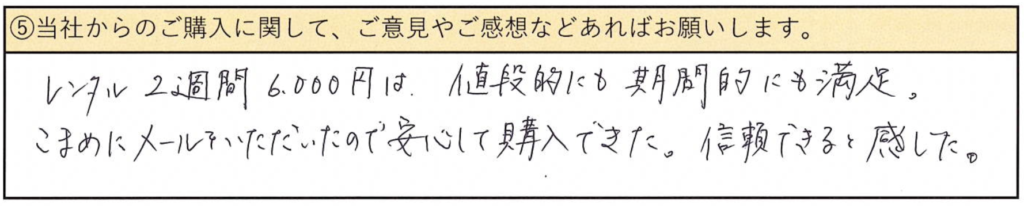 ⑤当社からのご購入に関して、ご意見やご感想などあればお願いします。
レンタル 2週間 6.000円は. 値段的にも 期間的にも満足。
こまめにメールをいただいたので安心して購入できた。信頼できると感じた。